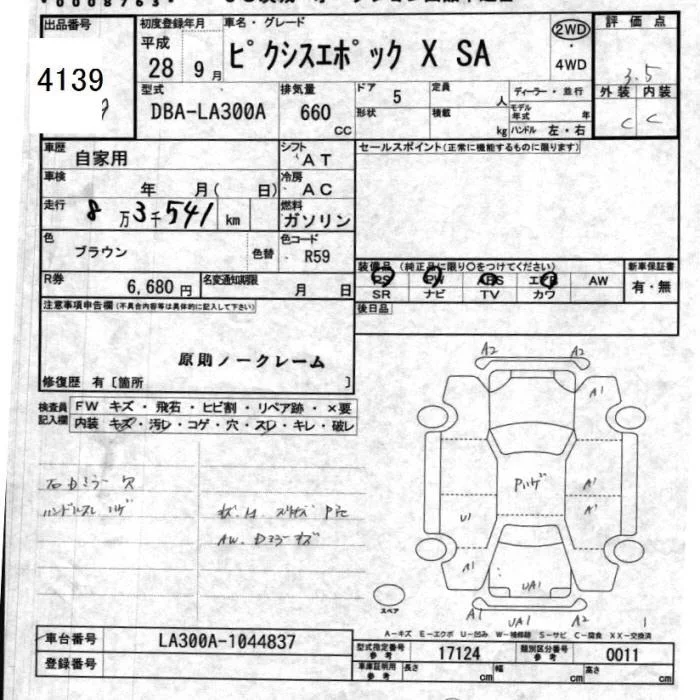 出品番号 初度登録年月 車名・グレード 評価点
4139 平成 28年 9月 ピクシスエポック X SA 2WD・4WD 3.5
型式 排気量 ドア 5 定員 人 ディーラー・並行 外装 内装
DBA-LA300A 660 CC 形状 積載 kg モデル年式 年 ハンドル 左・右 C C
車歴 自家用 シフト AT セールスポイント(正常に機能するものに限ります)
車検 年 月( 日) 冷房 AC
走行 8万3千541 km 燃料 ガソリン
色 ブラウン 色替 色コード R59
装備品 (純正品に限り○をつけてください) 新車保証書
R券 6,680円 名変通知期限 月 日 PS PW ABS エアB AW 有・無
SR ナビ TV カワ
注意事項申告欄(不具合内容等は具体的に記入して下さい) 後日品
原則ノークレーム
修復歴 有〔箇所 〕
検査員記入欄 FW キズ・飛石・ヒビ割・リペア跡・×要
内装 キズ・汚レ・コゲ・穴・スレ・キレ・破レ
A2 A2
A1
石Dミラー穴
ハンドルスレ ハゲ
AW. Dミラーキズ
Pハゲ
A1
A1
U1
A1
UA1
スペア
A1 UA1 A1 1
A-キズ E-エクボ U-凹み W-補修跡 S-サビ C-腐食 XX-交換済
車台番号 LA300A-1044837 型式指定番号 参考 17124 類別区分番号 参考 0011
登録番号 車庫証明用 参考 長さ cm 幅 cm 高さ cm